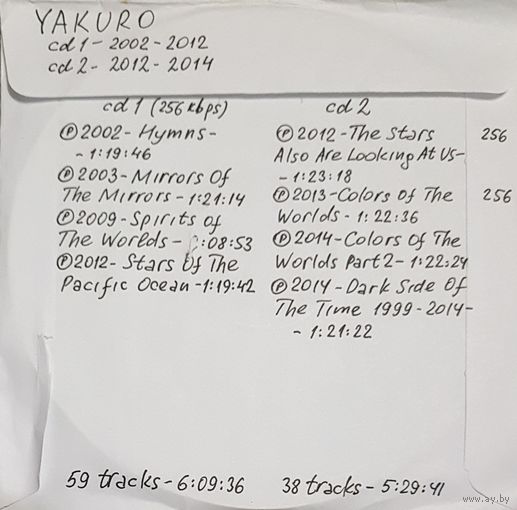 YAKURO
cd 1 - 2002 - 2012
cd 2 - 2012 - 2014
cd 1 (256 kbps)
Ⓟ 2002 - Hymns -
- 1:19:46
Ⓟ 2003 - Mirrors Of
The Mirrors - 1:21:14
Ⓟ 2009 - Spirits of
The Worlds - :08:53
Ⓟ 2012 - Stars Of The
Pacific Ocean - 1:19:42
59 tracks - 6:09:36
cd 2
Ⓟ 2012 - The Stars 256
Also Are Looking At Us -
- 1:23:18
Ⓟ 2013 - Colors Of The 256
Worlds - 1:22:36
Ⓟ 2014 - Colors Of The
Worlds Part 2 - 1:22:24
Ⓟ 2014 - Dark Side Of
The Time 1999 - 2014 -
- 1:21:22
38 tracks - 5:29:41
www.ay.by